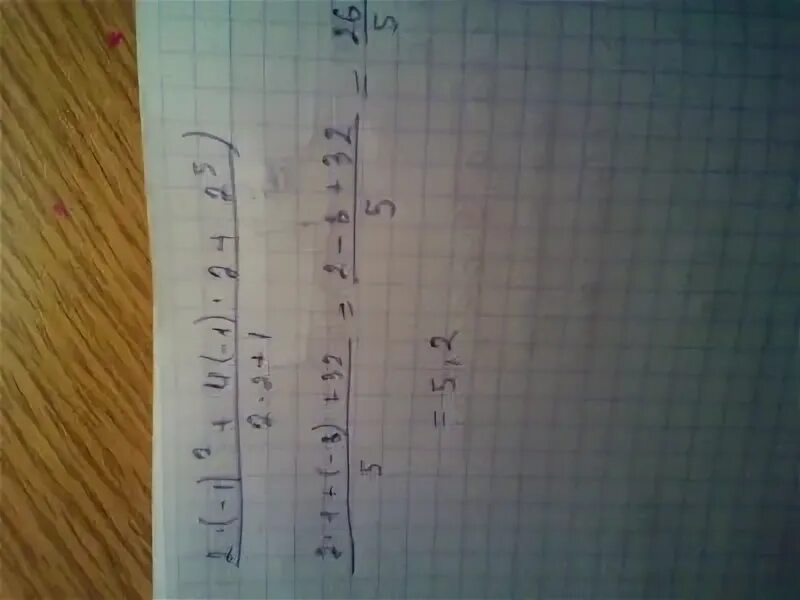 2·(-1)² + 4(-1)·2 + 2⁵)
2·2+1
2·1+(-8)+32 = 2-8+32 = 26
5 5 5
= 5,2